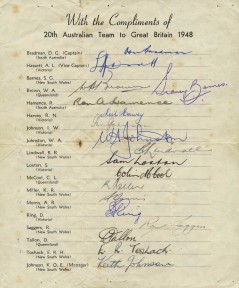 With the Compliments of
20th Australian Team to Great Britain 1948
Bradman, D. G. (Captain)
(South Australia)
Hassett, A. L. (Vice-Captain)
(Victoria)
Barnes, S. G.
(New South Wales)
Sidney Barnes.
Brown, W. A.
(Queensland)
Hamence, R.
(South Australia)
Ron A Hamence
Harvey, R. N.
(Victoria)
Johnson, I. W.
(Victoria)
Johnston, W. A.
(Victoria)
W A Johnston
Lindwall, R. R.
(New South Wales)
Loxton, S.
(Victoria)
Sam Loxton
McCool, C. L.
(Queensland)
Colin McCool
Miller, K. R.
(New South Wales)
Morris, A. R.
(New South Wales)
Ring, D.
(Victoria)
D Ring
Saggers, R.
(New South Wales)
Tallon, D.
(Queensland)
D Tallon
Toshack, E. R. H.
(New South Wales)
Toshack
Johnson, K. O. E. (Manager)
(New South Wales)
Keith Johnson